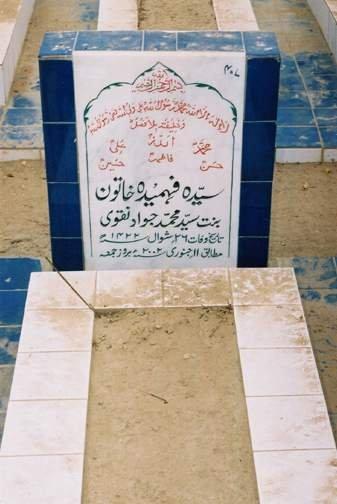 ۳۰۷
یا اللہ
بسم اللہ الرحمن الرحیم
لا الہ الا اللہ محمد رسول اللہ علی ولی اللہ وصی رسول اللہ
وخلیفتہ بلا فصل
محمدؐ اللہ علیؑ
حسنؑ فاطمہؑ حسینؑ
سیدہ فہمیدہ خاتون
بنت سید محمد جواد نقوی
تاریخ وفات ۲۶ شوال ۱۴۲۲ھ
مطابق ۱۱ جنوری ۲۰۰۲ء بروز جمعہ